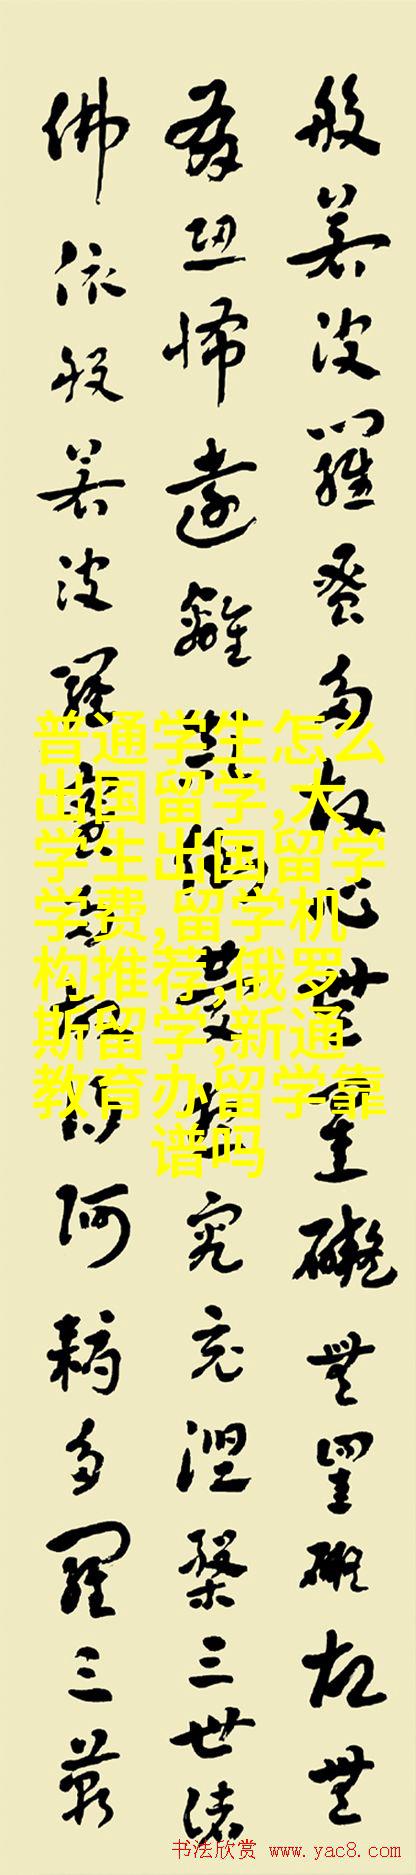 般若波羅蜜多故心無罣礙無罣礙故無
有恐怖遠離顛倒夢想究竟涅槃三世諸
佛依般若波羅蜜多故得阿耨多羅三藐
普通学生怎么
出国留学,大
学生出国留学
学费,留学机
构推荐,俄罗
斯留学,新通
教育办留学靠
谱吗
书法欣赏 www.yac8.com